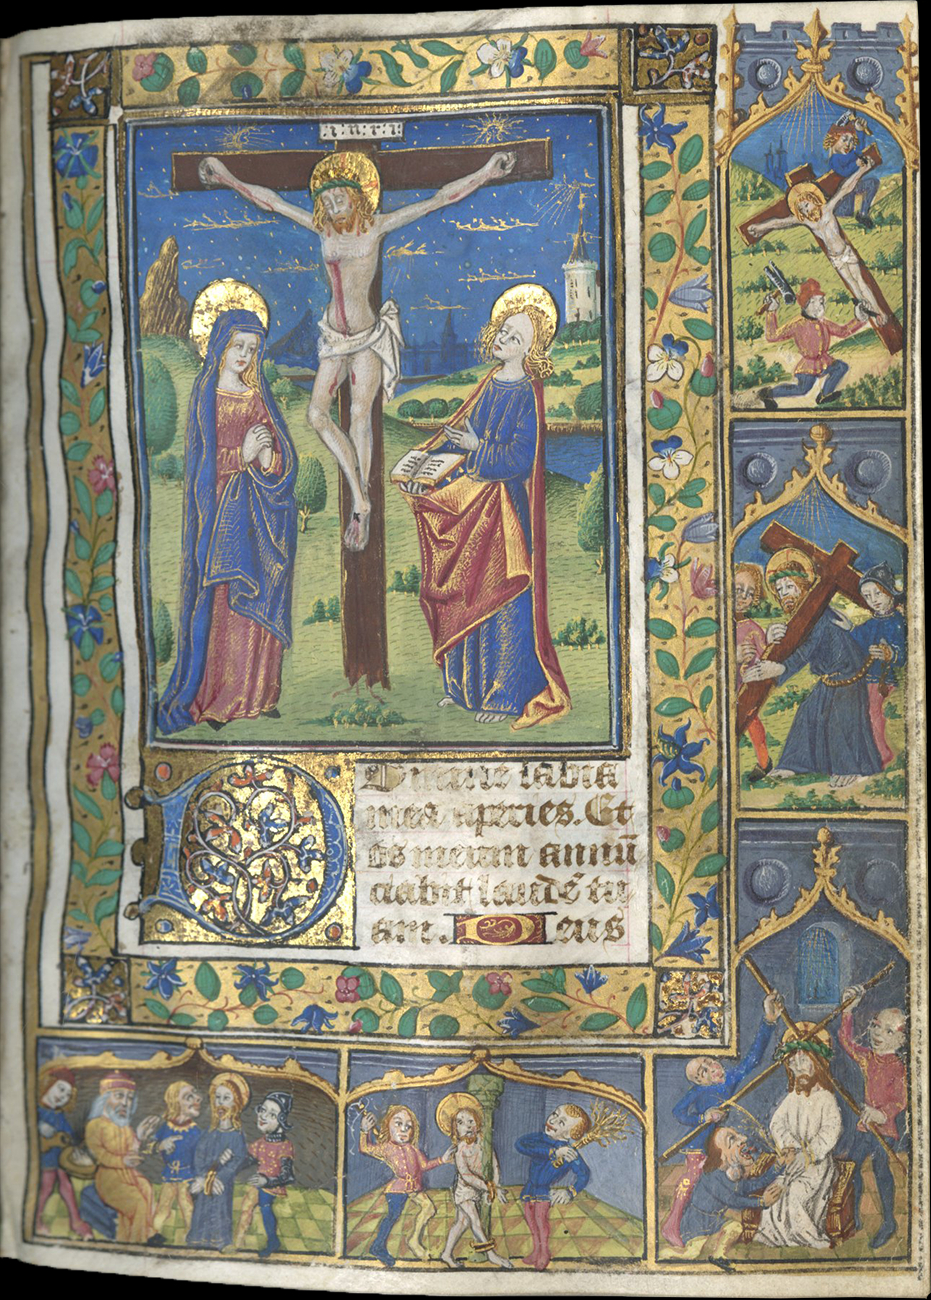 i·n·r·i
Domine labia
mea aperies. Et
os meum annū
ciabit laudē tu
am. Deus